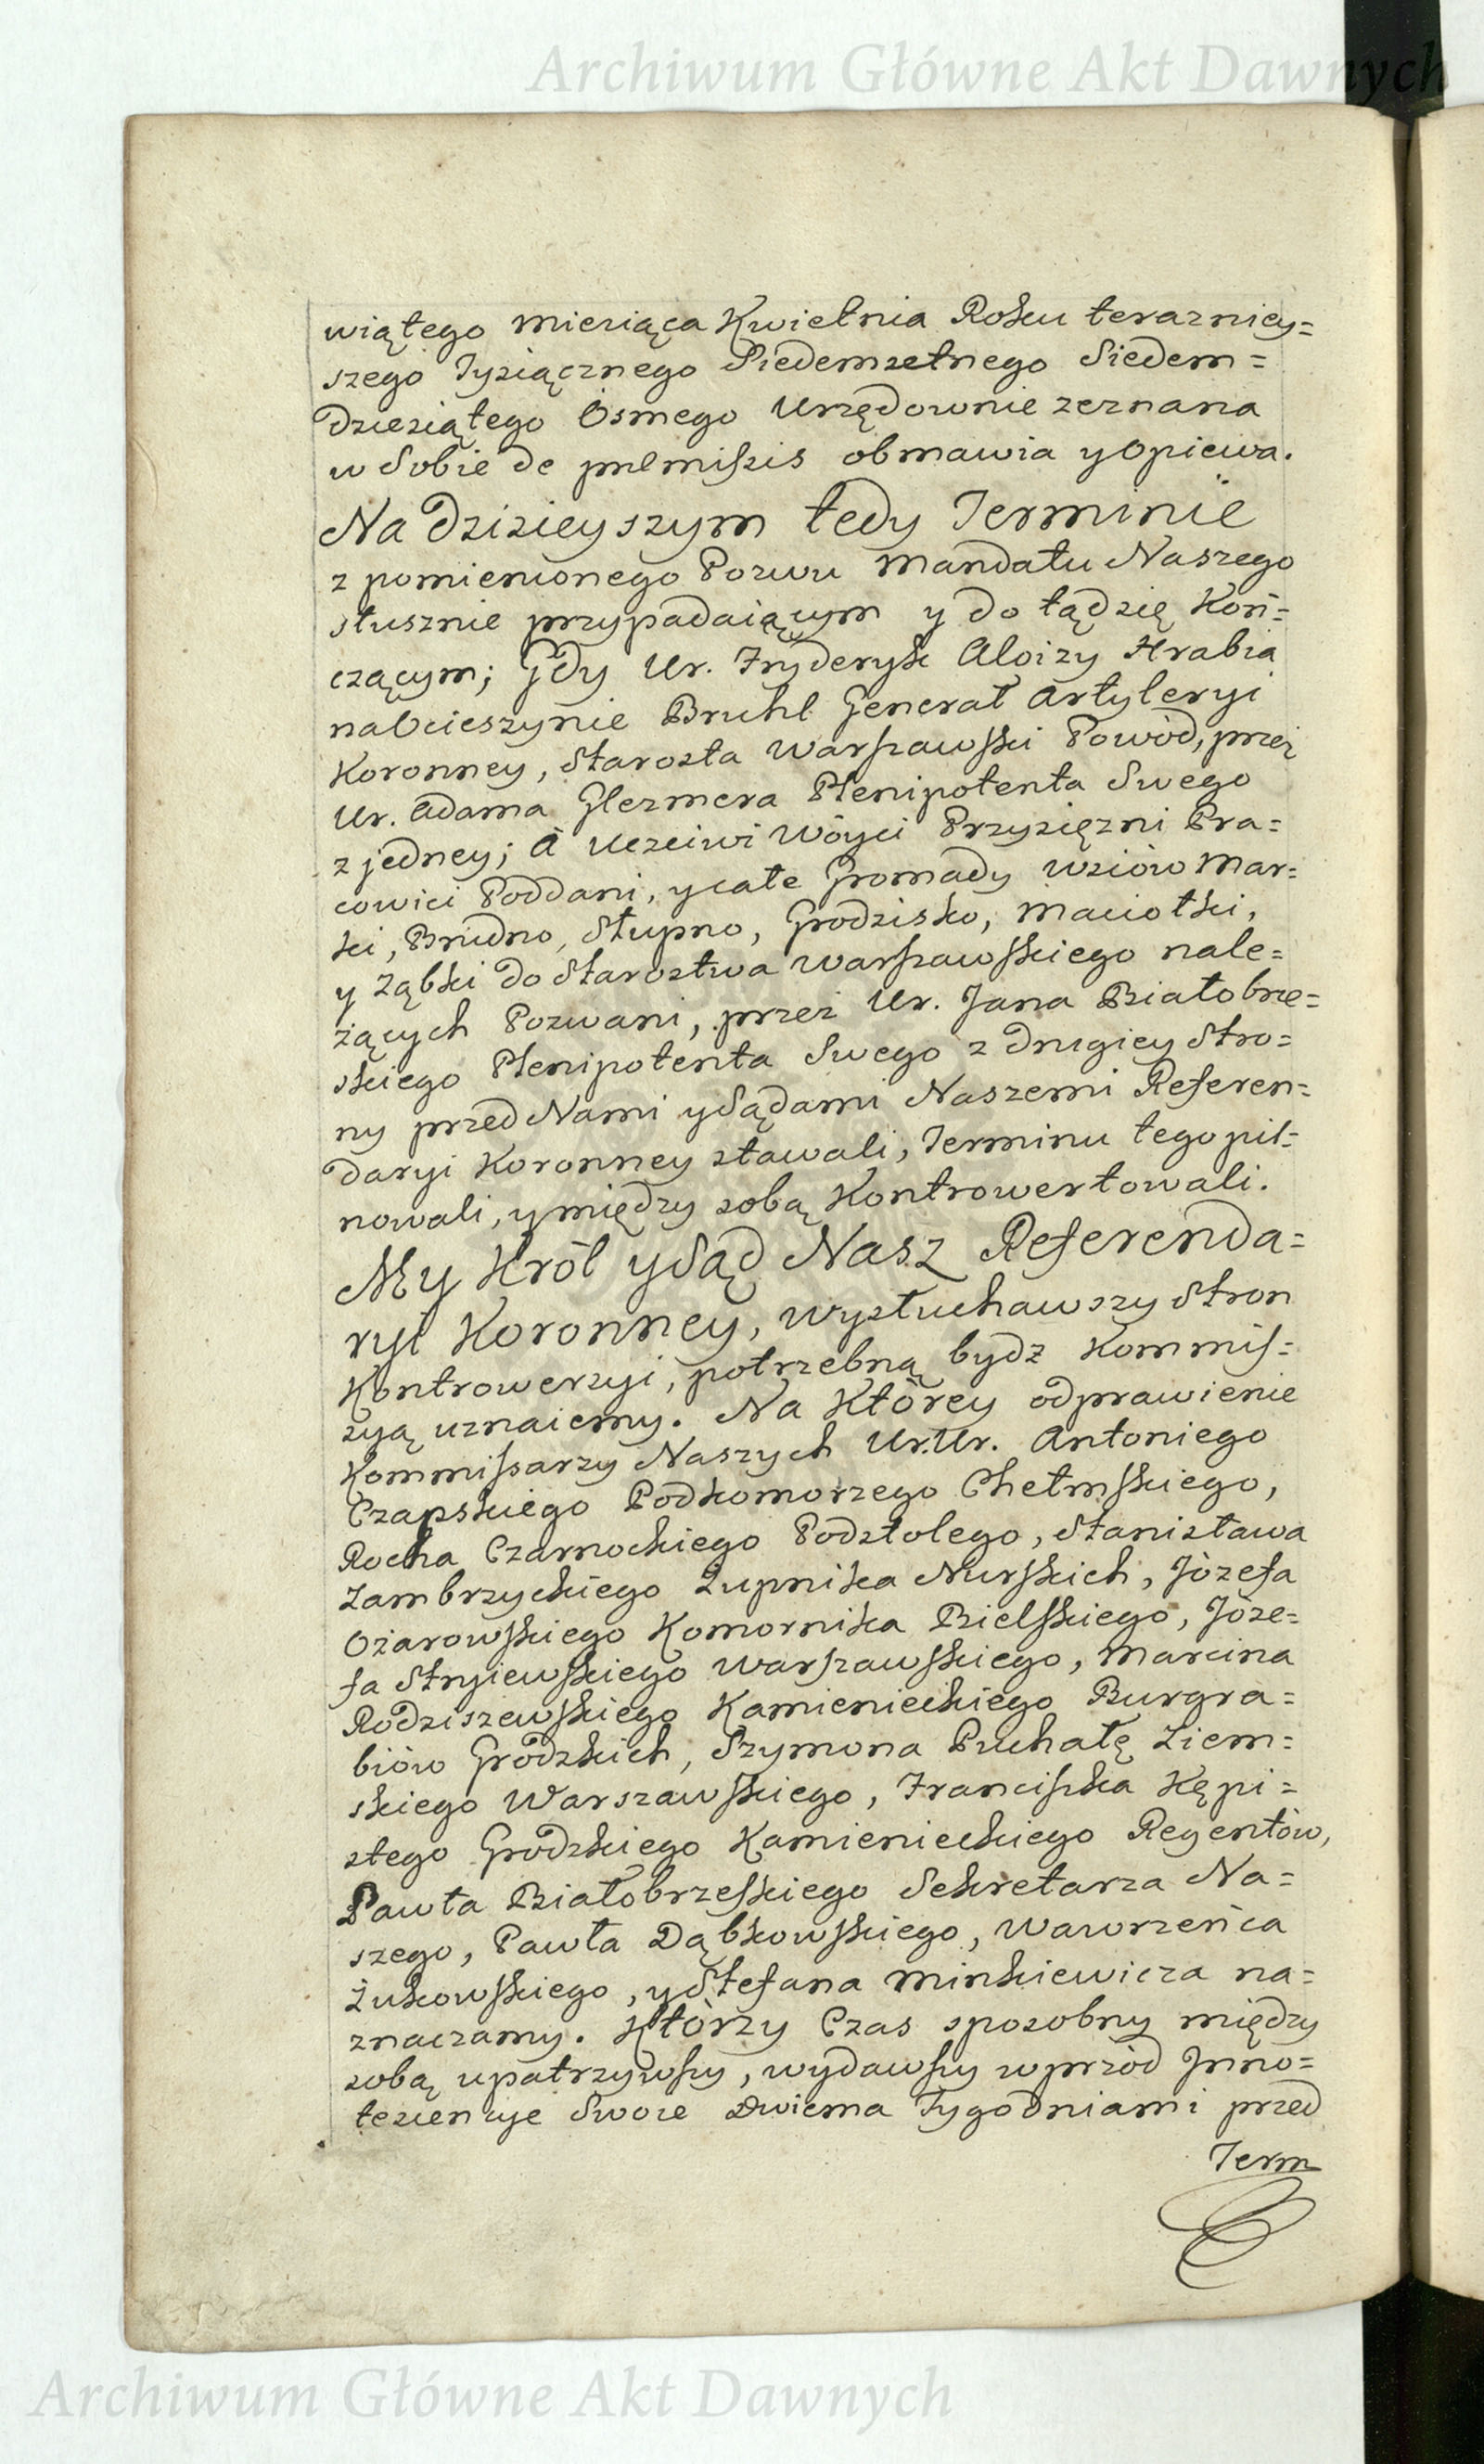 Archiwum Główne Akt Dawnych
wiątego Miesiąca Kwietnia Roku terazniey=
szego Tysiącznego Siedemsetnego Siedem=
dziesiątego Osmego Urzędownie zeznana
w Sobie de præmissis obmawia y Opiewa.
Na Dzisieyszym tedy Terminie
z pomienionego Pozwu Mandatu Naszego
słusznie przypadaiącym y dotądsię Koń=
czącym; Gdy Ur. Fryderyk Aloizy Hrabia
na Ocieszynie Bruhl Generał Artyleryi
Koronney, Starosta Warszawski Powód, przez
Ur. Adama Glezmera Plenipotenta Swego
z jedney; A Uczciwi Wóyci Przysięzni Pra=
cowici Poddani, y całe Gromady Wsiów Mar=
ki, Brudno, Słupno, Grodzisko, Maciołki,
y Ząbki do Starostwa Warszawskiego nale=
żących Pozwani, przez Ur. Jana Białobrze=
skiego Plenipotenta Swego z drugiey Stro=
ny przed Nami y Sądami Naszemi Referen=
daryi Koronney stawali, Terminu tego pil=
nowali, y między sobą Kontrowertowali.
My Król y Sąd Nasz Referenda=
ryi Koronney, wysłuchawszy Stron
Kontrowersyi, potrzebną bydz Kommis=
syą uznaiemy. Na Którey odprawienie
Kommissarzy Naszych Ur.Ur. Antoniego
Czapskiego Podkomorzego Chełmskiego,
Rocha Czarnockiego Podstolego, Stanisława
Zambrzyckiego Żupnika Nurskich, Józefa
Ożarowskiego Komornika Bielskiego, Józe=
fa Stryiewskiego Warszawskiego, Marcina
Rodziszewskiego Kamienieckiego Burgra=
biów Grodzkich, Szymona Puchałę Ziem=
skiego Warszawskiego, Franciszka Kępi=
stego Grodzkiego Kamienieckiego Regentów,
Pawła Białobrzeskiego Sekretarza Na=
szego, Pawła Dąbkowskiego, Wawrzeńca
Żukowskiego, y Stefana Minkiewicza na=
znaczamy. Którzy Czas sposobny między
sobą upatrzywszy, wydawszy wprzód Inno=
tescencye Swoie Dwiema Tygodniami przed
Term
Archiwum Główne Akt Dawnych